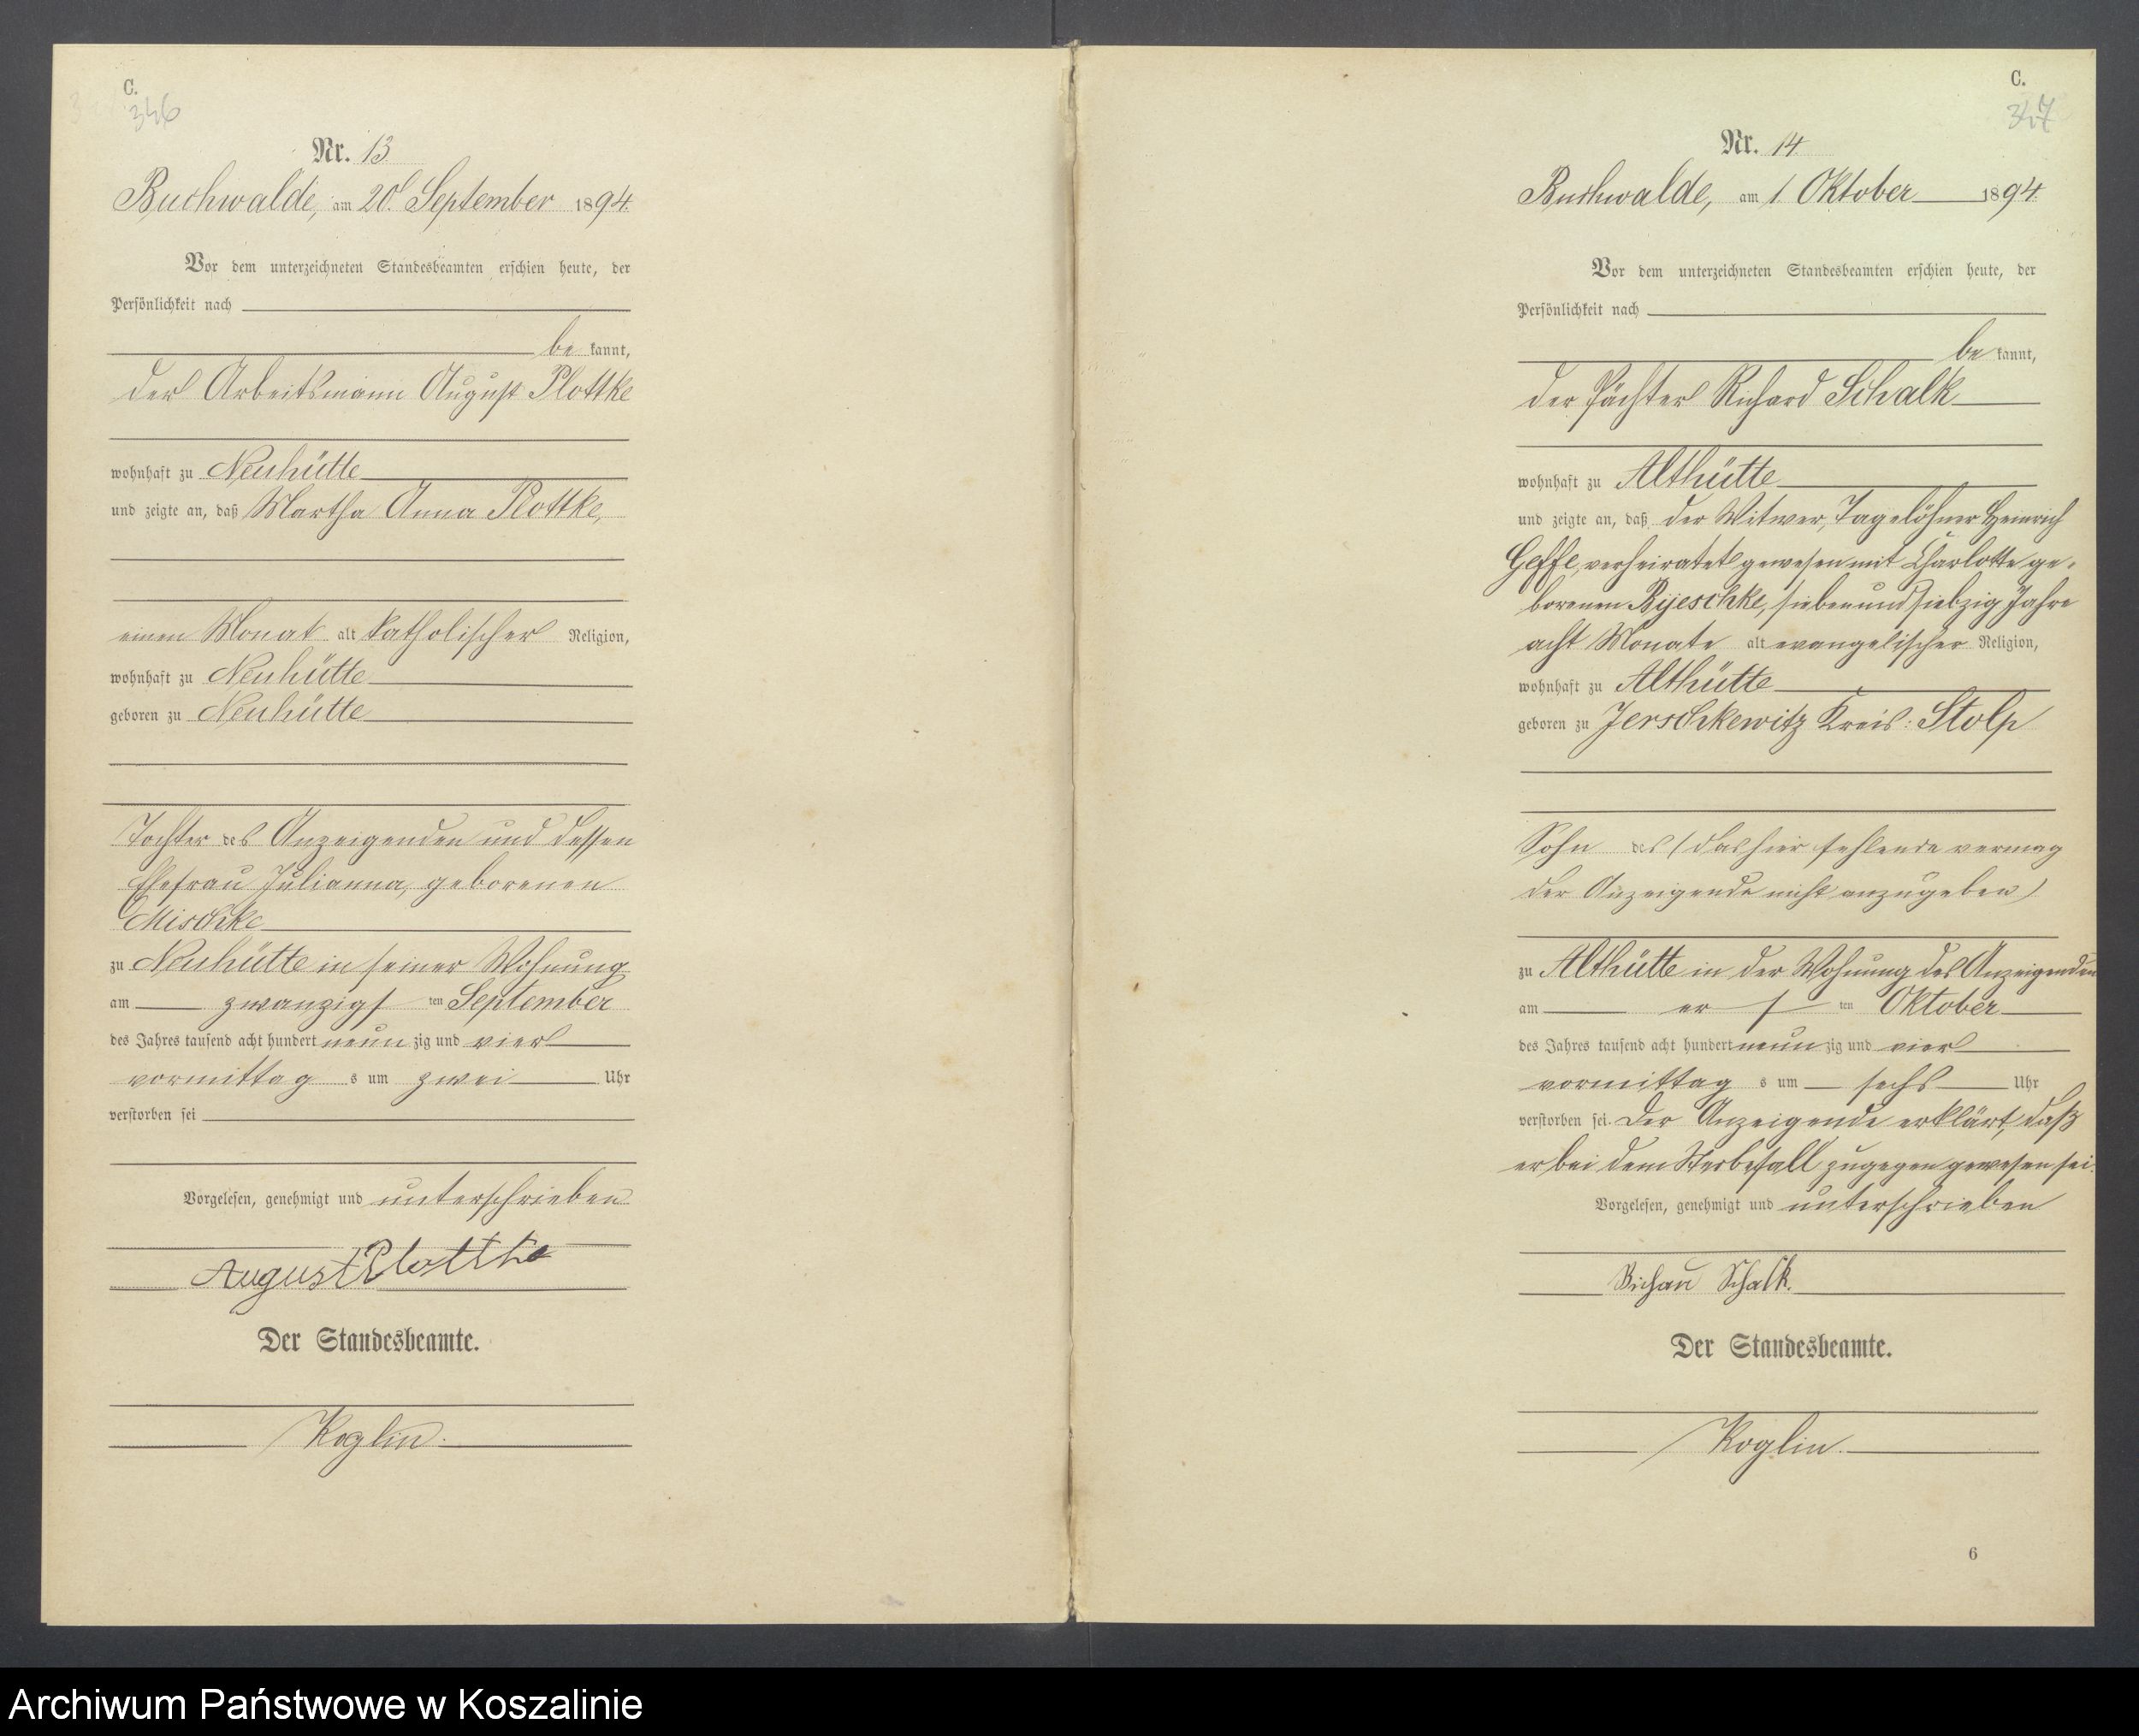 C.
346
Nr. 13
Buchwalde, am 20. September 1894.
Vor dem unterzeichneten Standesbeamten erschien heute, der
Persönlichkeit nach
be kannt,
der Arbeitsmann August Plottke
wohnhaft zu Neuhütte
und zeigte an, daß Martha Anna Plottke,
einen Monat alt katholischer Religion,
wohnhaft zu Neuhütte
geboren zu Neuhütte
Tochter des Anzeigenden und dessen
Ehefrau Julianna, geborenen
Mischke
zu Neuhütte in seiner Wohnung
am zwanzigs ten September
des Jahres tausend acht hundert neun zig und vier
vormittag s um zwei Uhr
verstorben sei
Vorgelesen, genehmigt und unterschrieben
August Plottke
Der Standesbeamte.
Koglin.
C.
347
Nr. 14
Buchwalde, am 1. Oktober 1894.
Vor dem unterzeichneten Standesbeamten erschien heute, der
Persönlichkeit nach
be kannt,
der Pächter Richard Schalk
wohnhaft zu Althütte
und zeigte an, daß der Witwer, Tagelöhner Heinrich
verheiratet gewesen mit Charlotte ge-
borenen siebenundsiebzig Jahre
acht Monate alt evangelischer Religion,
wohnhaft zu Althütte
geboren zu Jerschkewitz Kreis: Stolp
Sohn des (das hier fehlende vermag
der Anzeigende nicht anzugeben)
zu Althütte in der Wohnung des Anzeigenden
am er s ten Oktober
des Jahres tausend acht hundert neun zig und vier
vormittag s um sechs Uhr
verstorben sei. Der Anzeigende erklärt, daß
er bei dem Sterbefall zugegen gewesen sei.
Vorgelesen, genehmigt und unterschrieben
Schalk.
Der Standesbeamte.
Koglin.
6
Archiwum Państwowe w Koszalinie